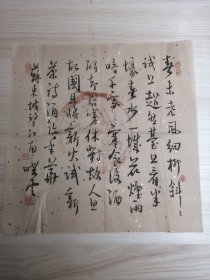 春未老風細柳斜〻
試上超然臺上看半
壕春水一城花煙雨
暗千家寒食後酒
醒却咨嗟休對故人思
故國且將新火試新
茶詩酒趁年華
蘇東坡望江南